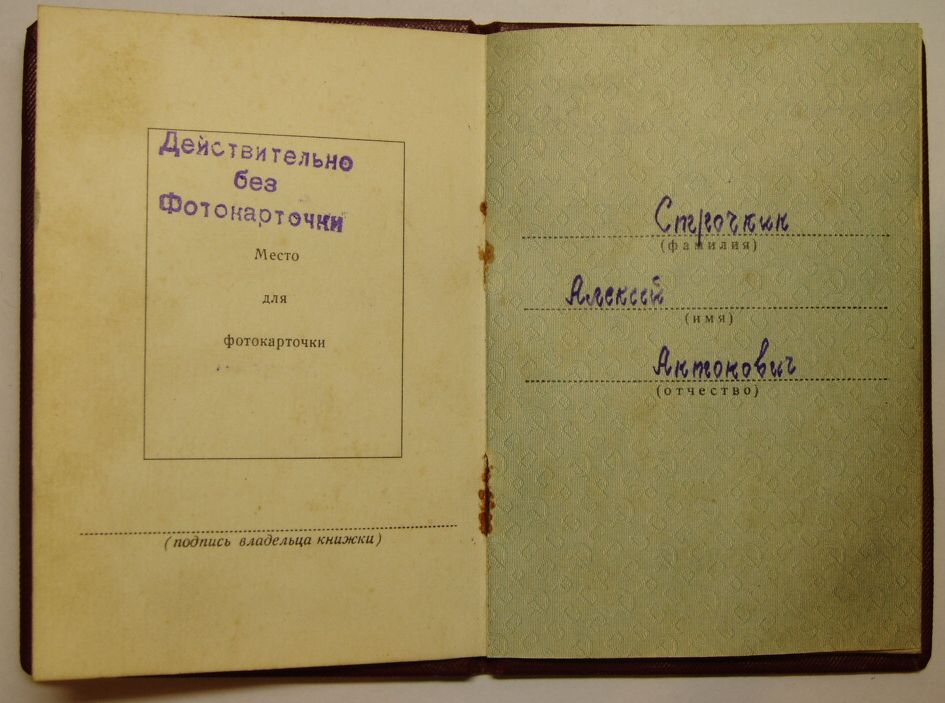 Действительно
без
Фотокарточки
Место
для
фотокарточки
(подпись владельца книжки)
Строчкин
(фамилия)
Алексей
(имя)
Антонович
(отчество)